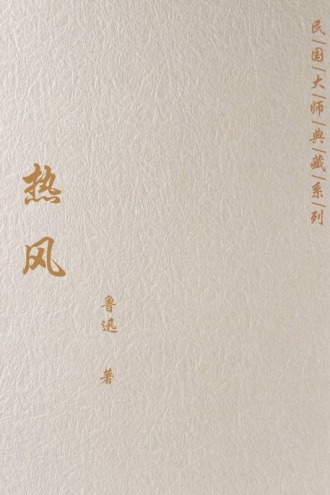 民国大师典藏系列
热风
鲁迅 著